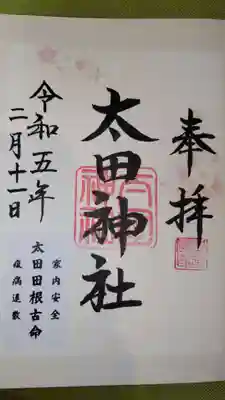 奉拝
太田神社
令和五年
二月十一日
家内安全
太田田根古命
疫病退散